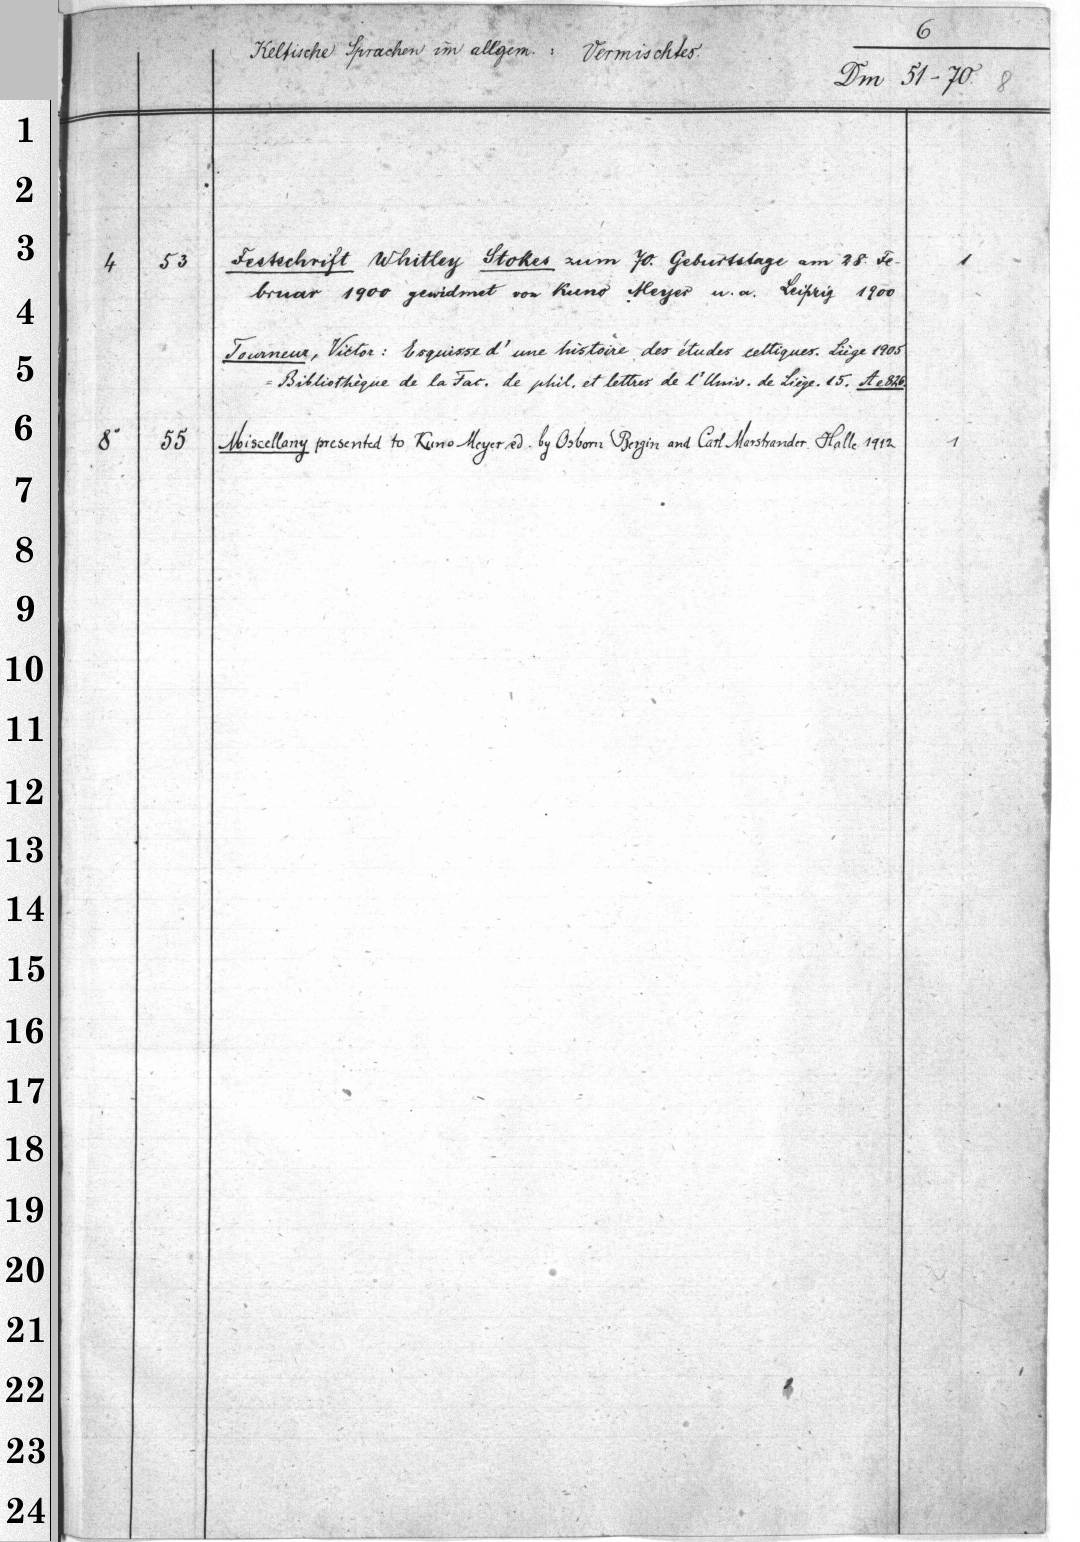 6
Keltische Sprachen im allgem. : Vermischtes.
Dm 51-70. 8
1
2
3
4
5
6
7
8
9
10
11
12
13
14
15
16
17
18
19
20
21
22
23
24
4 53 Festschrift Whitley Stokes zum 70. Geburtstage am 28. Fe- 1
bruar 1900 gewidmet von Kuno Meyer u. a. Leipzig 1900
Tourneur, Victor: Esquisse d'une histoire des études celtiques. Liège 1905
= Bibliothèque de la Fac. de phil. et lettres de l'Univ. de Liège. 15. Ae 826
8° 55 Miscellany presented to Kuno Meyer ed. by Osborn Bergin and Carl Marstrander. Halle 1912 1